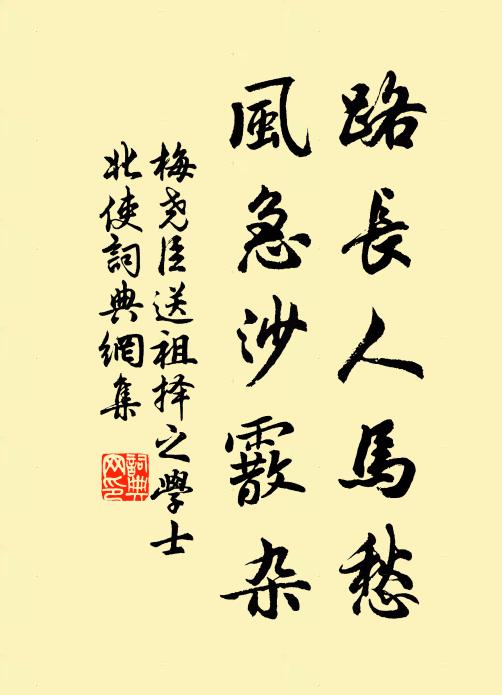 路長人馬愁
風急沙霰杂
梅尧臣送祖择之學士
北使詞典網集
詞典
网印